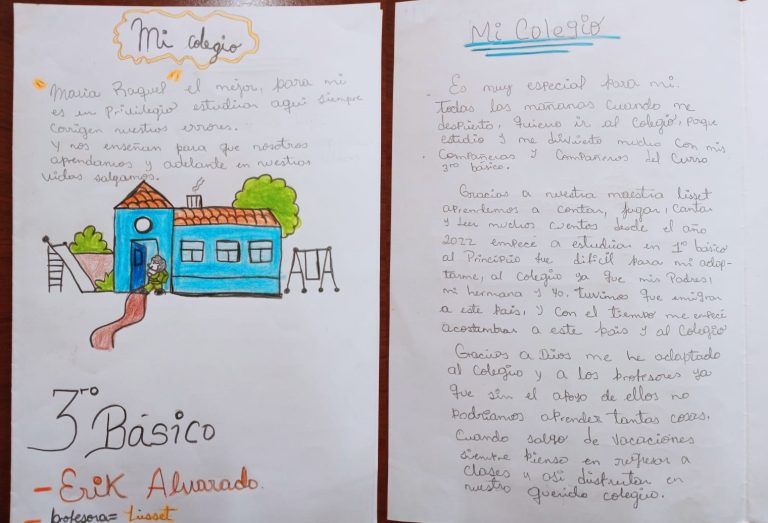 Mi colegio
Maria Raquel el mejor, para mi
es un Privilegio estudiar aqui siempre
corrigen nuestros errores...
Y nos enseñan para que nosotros
aprendamos y adelante en nuestras
vidas salgamos.
3ro Básico
- Erik Alvarado.
- profesora= Lisset
Mi Colegio
Es muy especial para mi.
Todas las mañanas cuando me
despierto, quiero ir al Colegio, porque
estudio y me divierto mucho con mis
Compañeras y Compañeros del Curso
3ro básico.
Gracias a nuestra maestra lisset
aprendemos a contar, jugar, Cantar
y leer muchos cuentos desde el año
2022 empecé a estudiar en 1º básico
al Principio fue dificil para mi adap-
tarme, al Colegio ya que mis Padres,
mi hermana y yo. tuvimos que emigrar
a este pais, y con el tiempo me empecé
acostumbrar a este pais y al Colegio
Gracias a Dios me he adaptado
al Colegio y a los profesores ya
que sin el apoyo de ellos no
podriamos aprender tantas cosas.
Cuando salgo de vacaciones
siempre pienso en regresar a
clases y asi disfrutar en
nuestro querido colegio.